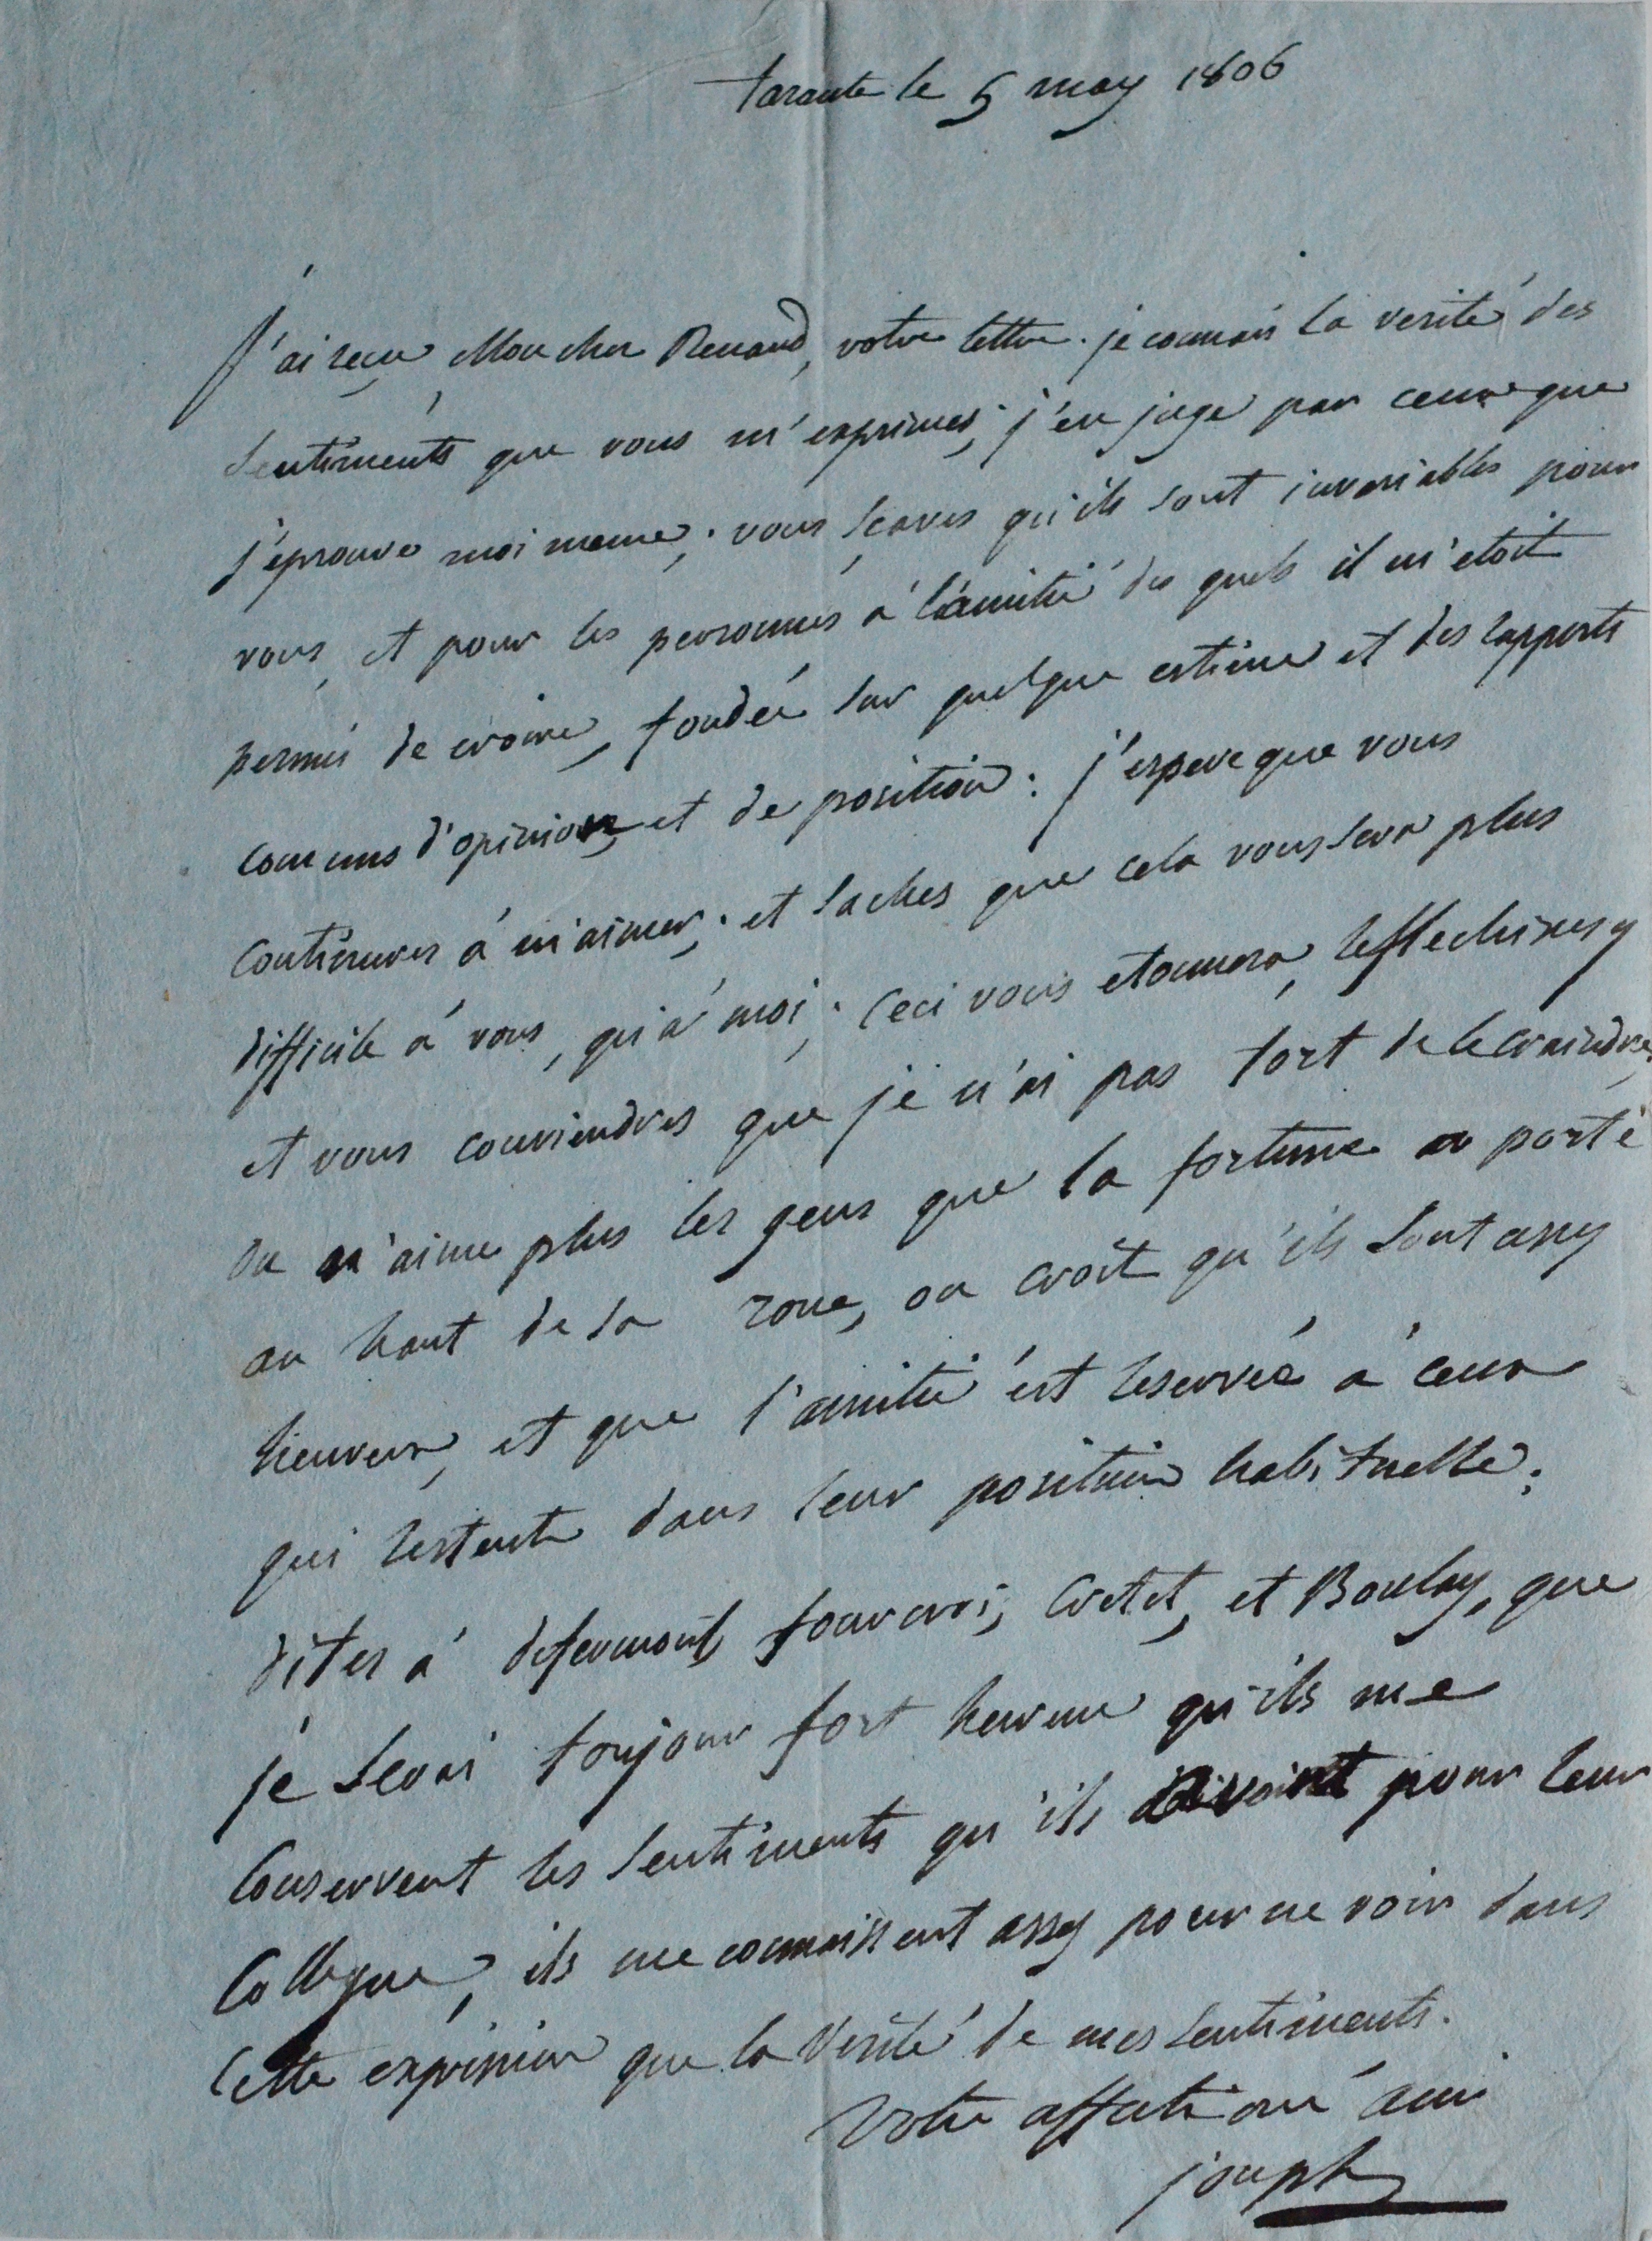 tarante le 5 may 1806
J'ai reçu Mon cher Renaud, votre lettre. je connais la verité des
sentiments que vous m'exprimes; j'en juge par ceux que
j'éprouve moi meme; vous scaves qu'ils sont invariables pour
vous, et pour les personnes à l'amitié des quels il m'etoit
permis de croire, fondée sur quelque estime et des rapports
comuns d'opinion, et de position: j'espere que vous
continueres à m'aimer; et saches que cela vous sera plus
difficile à vous, qu'à moi; ceci vous etonnera, reflechisses y
et vous conviendres que je n'ai pas tort de le craindre,
on n'aime plus les gens que la fortune a porté
au haut de sa roue, on croit qu'ils sont assez
heureux, et que l'amitié est reservée à ceux
qui restent dans leur position habituelle;
dites à defermont, fourcroi, Cretet, et Boulay, que
je serai toujour fort heureux qu'ils me
conservent les sentiments qu'ils avoient pour leur
Collegue, ils me connaissent assez pour ne voir dans
cette expression que la verité de mes sentiments.
Votre affectioné ami
joseph